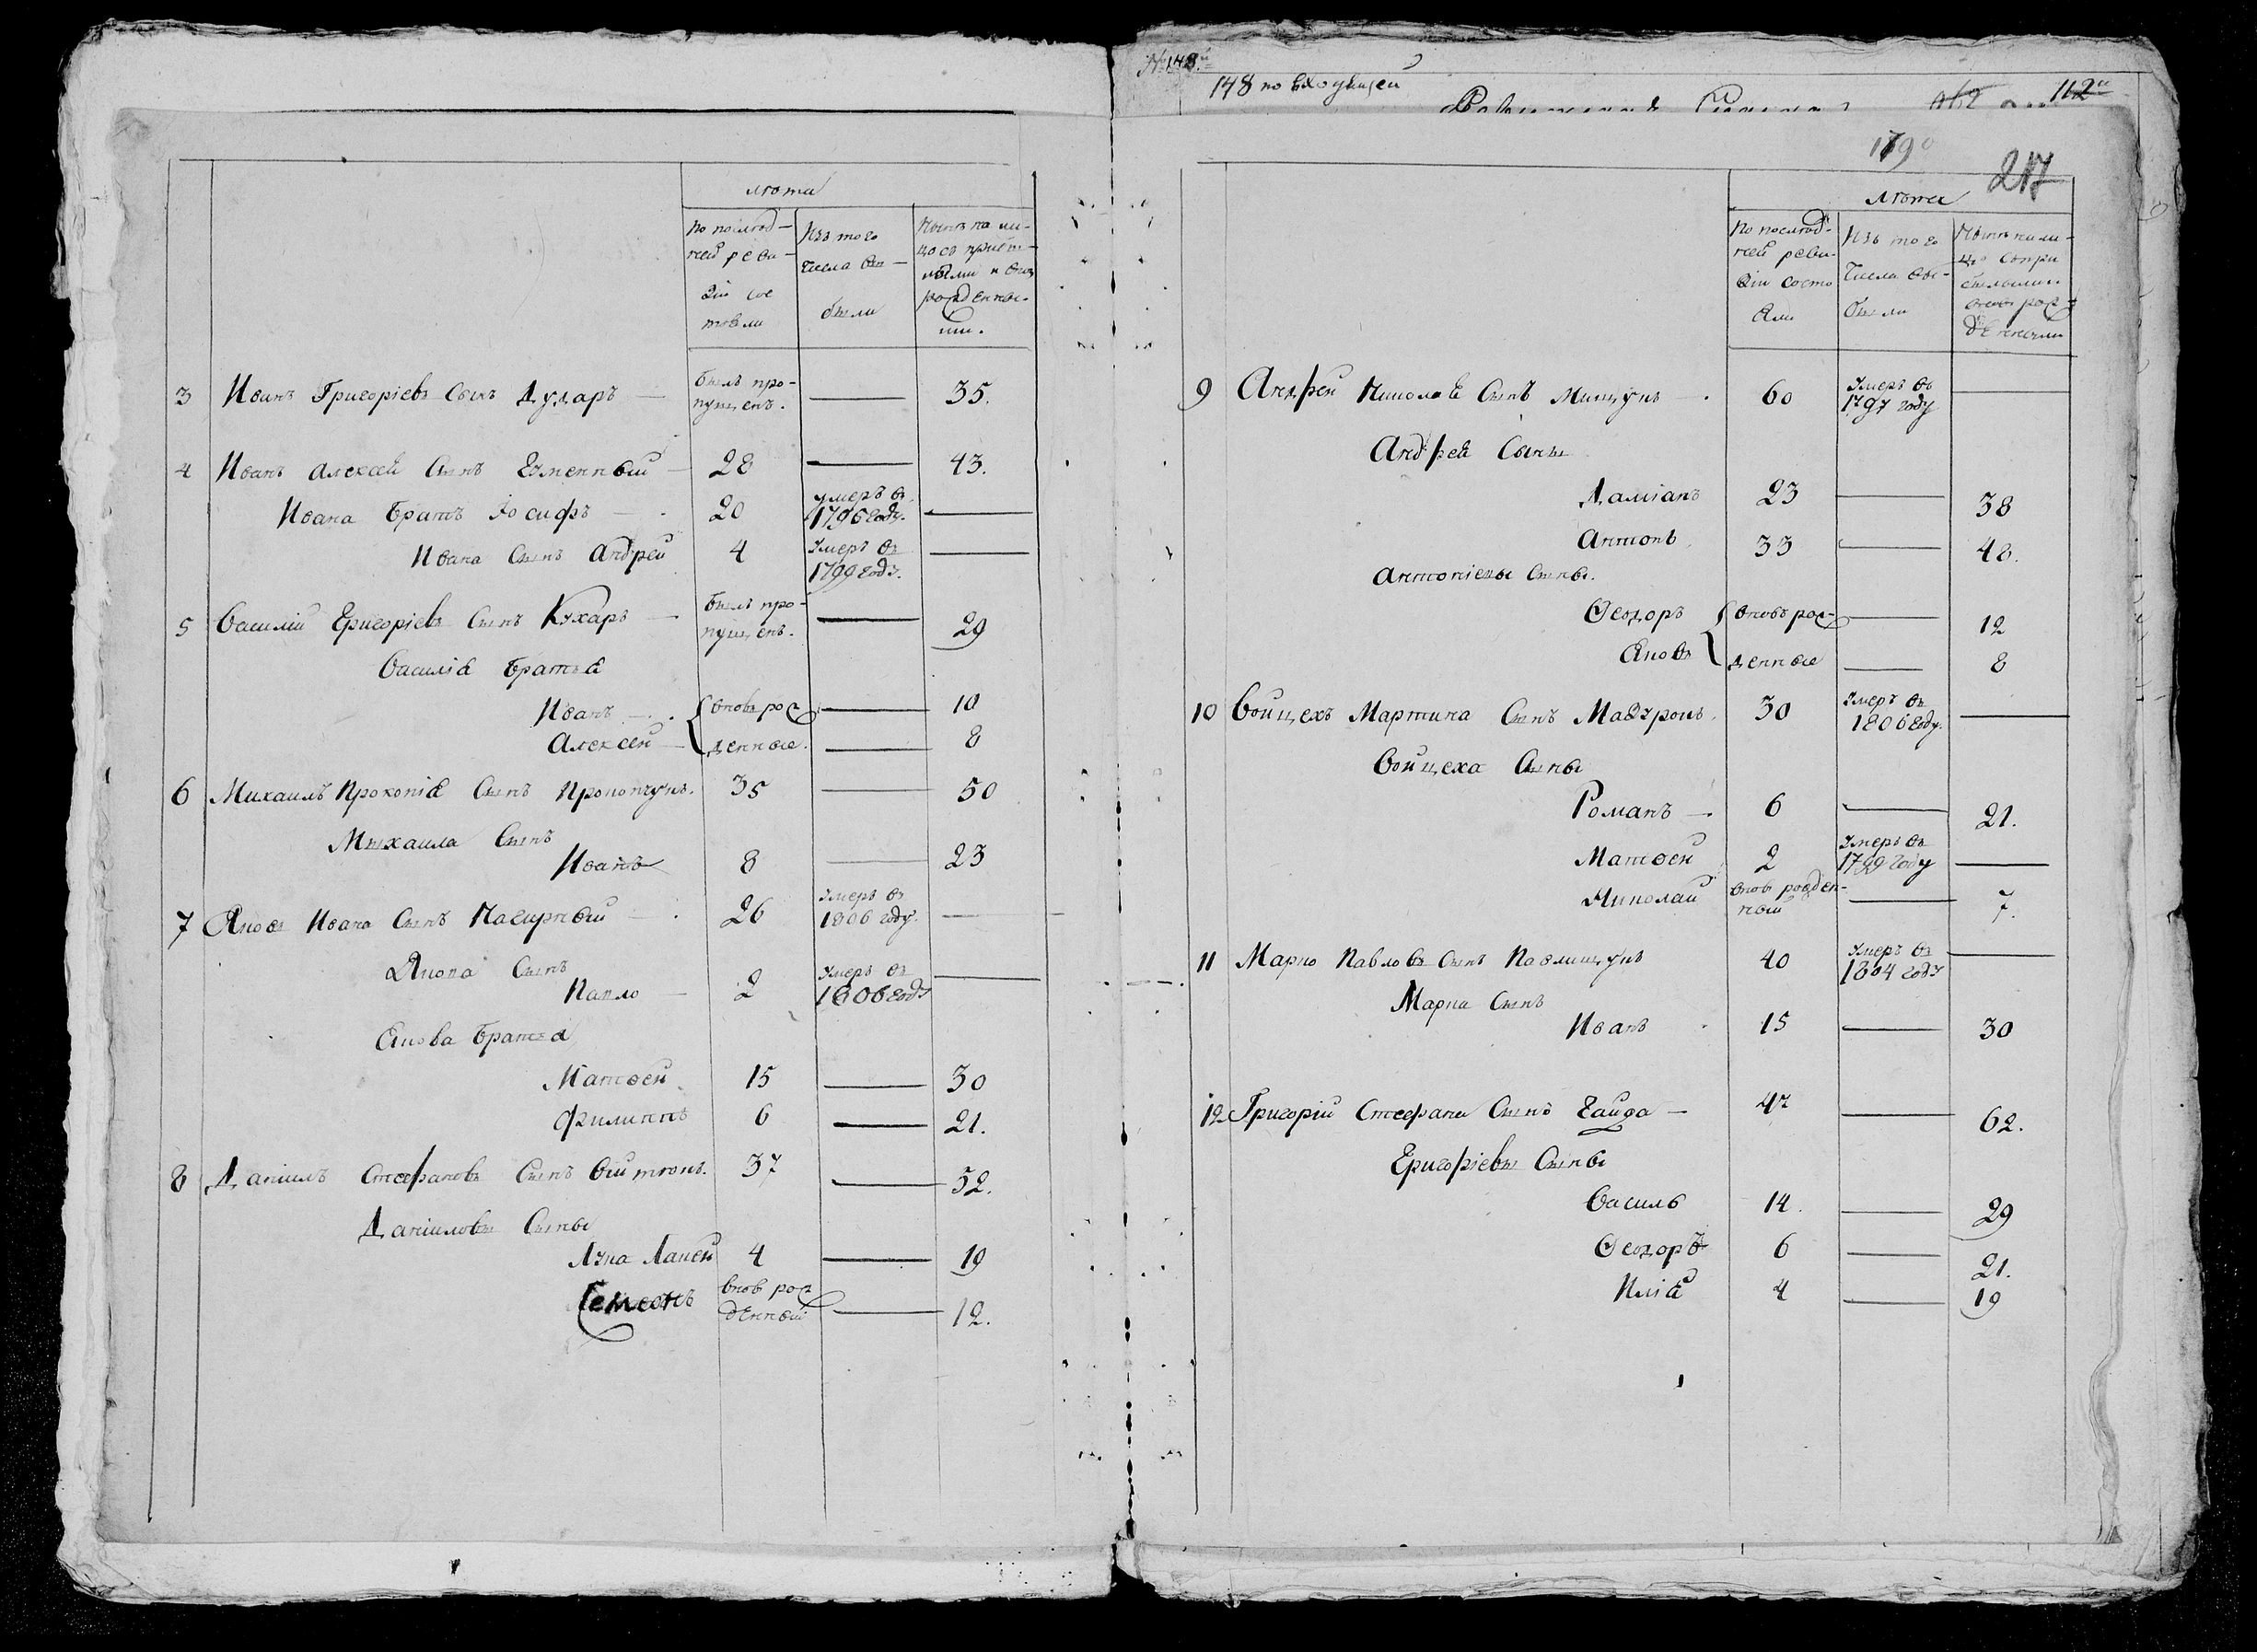 № 148.й
148 по входящей
112й
1790
217
лѣта
По послѣд-
ней реви-
зіи сос
тояли
Изъ того
числа вы-
были
Нынѣ на ли-
цо съ прибы-
лыми и внов
рожденны-
ми.
3 Иванъ Григоріевъ сынъ Дударъ — былъ про-пущенъ. — 35.
4 Иванъ Алексѣя сынъ Ячменный — 28 — 43.
Ивана братъ Іосифъ — 20 умеръ въ 1796 году. —
Ивана сынъ Андрей 4 умеръ въ 1799 году. —
5 Василій Григоріевъ сынъ Кухаръ — былъ про-пущенъ. — 29
Василія братья
Иванъ — { вновь рож — 10
Алексей — денные. — 8
6 Михаилъ Прокопія сынъ Прокопчукъ. 35 — 50
Михаила сынъ
Иванъ 8 — 23
7 Яковъ Ивана сынъ Нагирный — 26 умеръ въ 1806 году. —
Якова сынъ
Павло — 2 умеръ въ 1806 году —
Якова братья
Матвей 15 — 30
Филиппъ 6 — 21.
8 Даніилъ Стефановъ сынъ 37 — 52.
Даніиловы сыны
Лука 4 — 19
Семенъ внов рож денный — 12.
лѣта
По послѣд-
ней реви-
зіи состо
яли
Изъ того
числа вы-
были
Нынѣ нали-
цо сопри
былыми
внов рож
денными
9 Андрей Николая сынъ Мищукъ — 60 умеръ въ 1797 году —
Андрея сыны
Даміанъ 23 — 38
Антонъ 33 — 48.
Антоніевы сыны.
Ѳеодоръ { вновь рож- — 12
Яковъ { денные — 8
10 Войцехъ Мартина сынъ Мазуръ 30 умеръ въ 1806 году. —
Войцеха сыны
Романъ — 6 — 21.
Матвей 2 умеръ въ 1799 году —
Николай внов рожден-ный — 7.
11 Марко Павловъ сынъ Павлищукъ 40 умеръ въ 1804 году —
Марка сынъ
Иванъ 15 — 30
12 Григорій Стефана сынъ Гайда — 47 — 62.
Григоріевы сыны
Василь 14. — 29
Ѳеодоръ 6 — 21.
Илія 4 — 19